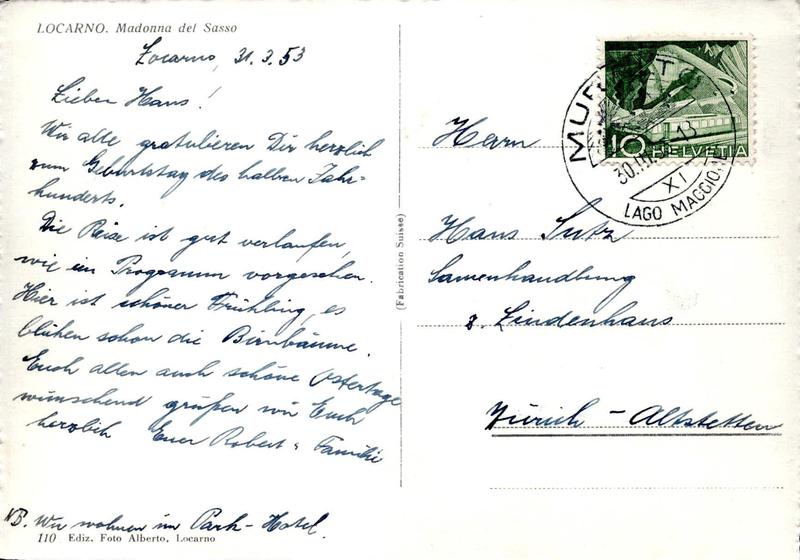 LOCARNO. Madonna del Sasso
Locarno, 31.3.53
Lieber Hans!
Wir alle gratulieren Dir herzlich
zum Geburtstag des halben Jahr-
hunderts.
Die Reise ist gut verlaufen,
wie im Programm vorgesehen.
Hier ist schöner Frühling, es
blühen schon die Birnbäume.
Euch allen auch schöne Ostertage
wünschend grüßen wir Euch
herzlich Euer Robert & Familie
NB. Wir wohnen im Park-Hotel.
110 Ediz. Foto Alberto, Locarno
(Fabrication Suisse)
10 HELVETIA
MUR
30.III.5 -13
XI
LAGO MAGGIORE
Herrn
Hans Lutz
Samenhandlung
z. Lindenhaus
Zürich-Altstetten